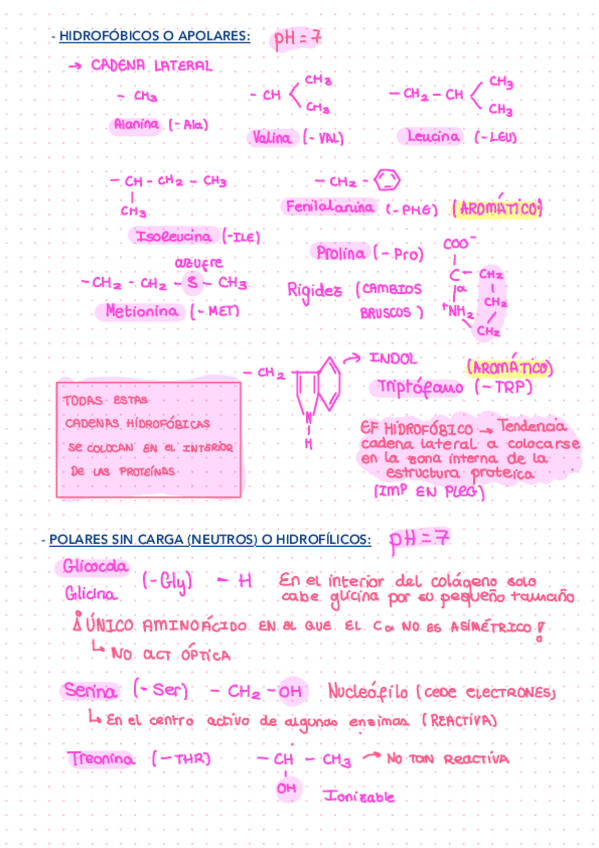 - HIDROFÓBICOS O APOLARES: pH = 7
→ CADENA LATERAL
- CH3
Alanina (- Ala)
- CH CH3 CH3
Valina (- VAL)
- CH2 - CH CH3 CH3
Leucina (- LEU)
- CH - CH2 - CH3
CH3
Isoleucina (- ILE)
- CH2 -
Fenilalanina (- PHE) (AROMÁTICO)
azufre
- CH2 - CH2 - S - CH3
Metionina (- MET)
Prolina (- Pro)
Rigidez (CAMBIOS
BRUSCOS)
COO-
C - CH2
α
CH2
+NH2
CH2
- CH2
N
H
→ INDOL
(AROMÁTICO)
Triptófano (- TRP)
TODAS ESTAS
CADENAS HIDROFÓBICAS
SE COLOCAN EN EL INTERIOR
DE LAS PROTEÍNAS
EF HIDROFÓBICO → Tendencia
cadena lateral a colocarse
en la zona interna de la
estructura proteica
(IMP EN PLEG)
- POLARES SIN CARGA (NEUTROS) O HIDROFÍLICOS: pH = 7
Glicocola
Glicina
(- Gly) - H
En el interior del colágeno solo
cabe glicina por su pequeño tamaño
¡ÚNICO AMINOÁCIDO EN EL QUE EL Cα NO ES ASIMÉTRICO!
↳ NO ACT ÓPTICA
Serina (- Ser) - CH2 - OH Nucleófilo (CEDE ELECTRONES)
↳ En el centro activo de algunas enzimas (REACTIVA)
Treonina (- THR) - CH - CH3 → NO TAN REACTIVA
OH
Ionizable